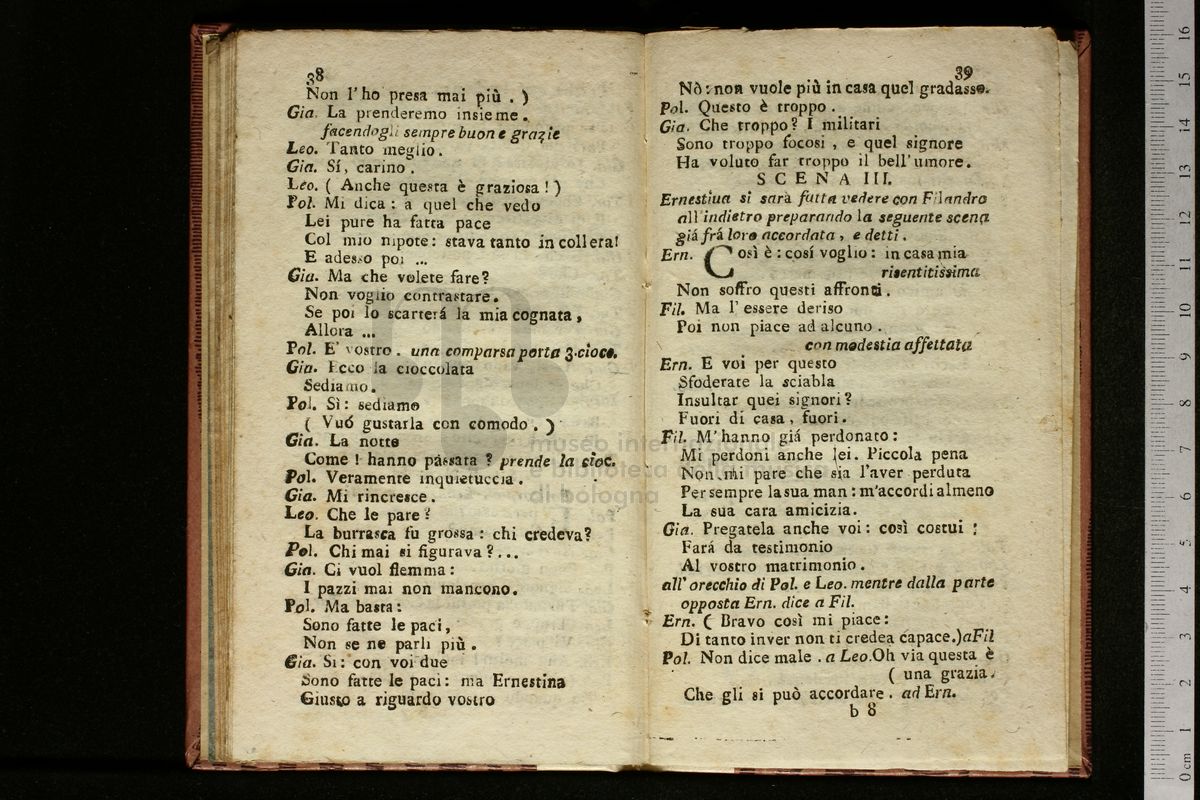 38
Non l'ho presa mai più . )
Gia. La prenderemo insieme.
facendogli sempre buone grazie
Leo. Tanto meglio.
Gia. Sí, carino.
Leo. ( Anche questa è graziosa ! )
Pol. Mi dica : a quel che vedo
Lei pure ha fatta pace
Col mio nipote: stava tanto in collera!
E adesso poi ...
Gia. Ma che volete fare?
Non voglio contrastare.
Se poi lo scarterá la mia cognata,
Allora ...
Pol. E' vostro. una comparsa porta 3. cioco.
Gia. Ecco la cioccolata
Sediamo.
Pol. Sì: sediamo
( Vuó gustarla con comodo . )
Gia. La notte
Come ! hanno passata ? prende la cioc.
Pol. Veramente inquietuccia .
Gia. Mi rincresce.
Leo. Che le pare?
La burrasca fu grossa : chi credeva?
Pol. Chi mai si figurava ? ...
Gia. Ci vuol flemma :
I pazzi mai non mancono.
Pol. Ma basta :
Sono fatte le paci,
Non se ne parli più .
Gia. Si: con voi due
Sono fatte le paci: ma Ernestina
Giusto a riguardo vostro
39
Nò : non vuole più in casa quel gradasso.
Pol. Questo è troppo .
Gia. Che troppo? I militari
Sono troppo focosi , e quel signore
Ha voluto far troppo il bell' umore.
SCENA III.
Ernestiua si sarà fatta vedere con Filandro
all' indietro preparando la seguente scena
giá frá loro accordata , e detti .
Ern. Così è : cosí voglio : in casa mia
risentitissima
Non soffro questi affronti .
Fil. Ma l' essere deriso
Poi non piace ad alcuno .
con modestia affettata
Ern. E voi per questo
Sfoderate la sciabla
Insultar quei signori?
Fuori di casa , fuori .
Fil. M' hanno giá perdonato :
Mi perdoni anche lei. Piccola pena
Non mi pare che sia l'aver perduta
Per sempre la sua man : m'accordi almeno
La sua cara amicizia.
Gia. Pregatela anche voi : così costui ;
Fará da testimonio
Al vostro matrimonio .
all' orecchio di Pol. e Leo. mentre dalla parte
opposta Ern. dice a Fil.
Ern. ( Bravo così mi piace :
Di tanto inver non ti credea capace.) a Fil
Pol. Non dice male . a Leo. Oh via questa è
( una grazia.
Che gli si può accordare . ad Ern.
b 8
museo internazionale
e biblioteca della musica
di bologna
0 cm 1 2 3 4 5 6 7 8 9 10 11 12 13 14 15 16